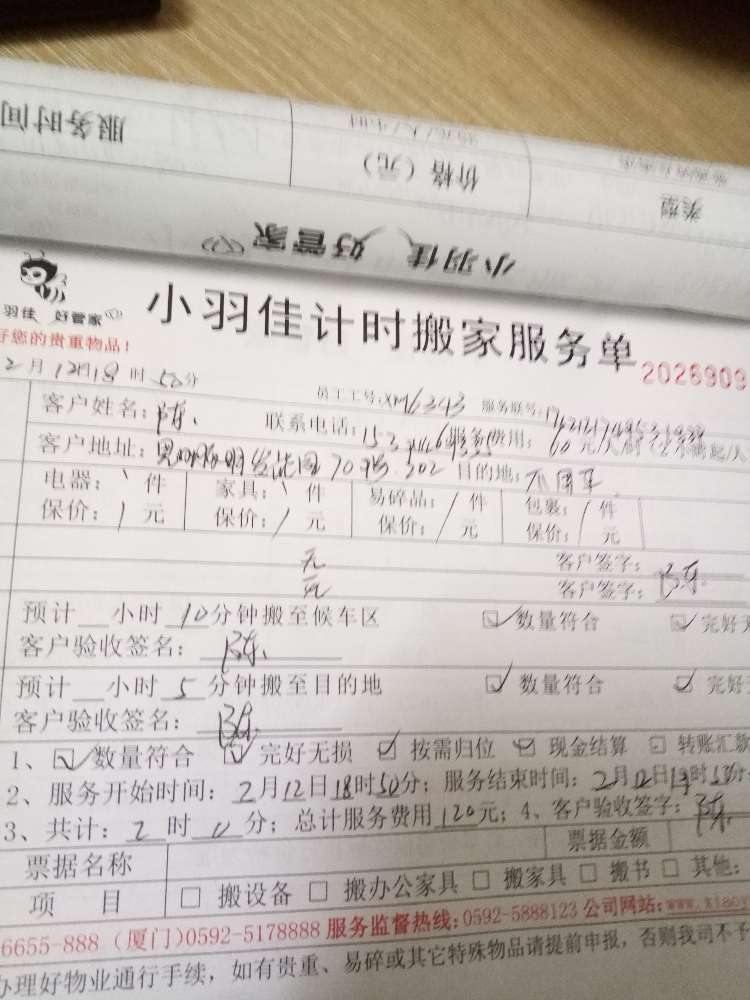 服务时间
价格（元）
类型
小羽佳 好管家
羽佳 好管家
小羽佳计时搬家服务单
好您的贵重物品！
2026909
2月12日18时50分
员工工号：XM6343 服务账号：
客户姓名：陈
联系电话：
服务费用：60元/人/时（2小时起/人
客户地址：
70号 302 目的地：不用车
电器：\件 家具：\件 易碎品：/件 包裹：/件
保价：/元 保价：/元 保价：/元 保价：/元
元 客户签字：陈
元 客户签字：
预计__小时10分钟搬至候车区 ☑数量符合 ☑完好无
客户验收签名：陈
预计__小时5分钟搬至目的地 ☑数量符合 ☑完好
客户验收签名：陈
1、☑数量符合 ☑完好无损 ☑按需归位 ☑现金结算 □转账汇款
2、服务开始时间：2月12日18时50分；服务结束时间：2月12日19时50分
3、共计：2时0分；总计服务费用120元；4、客户验收签字：陈
票据名称 票据金额
项 目 □ 搬设备 □ 搬办公家具 □ 搬家具 □ 搬书 □ 其他：
6655-888 （厦门)0592-5178888 服务监督热线:0592-5888123 公司网站：www.xiaoy
办理好物业通行手续，如有贵重、易碎或其它特殊物品请提前申报，否则我司不予